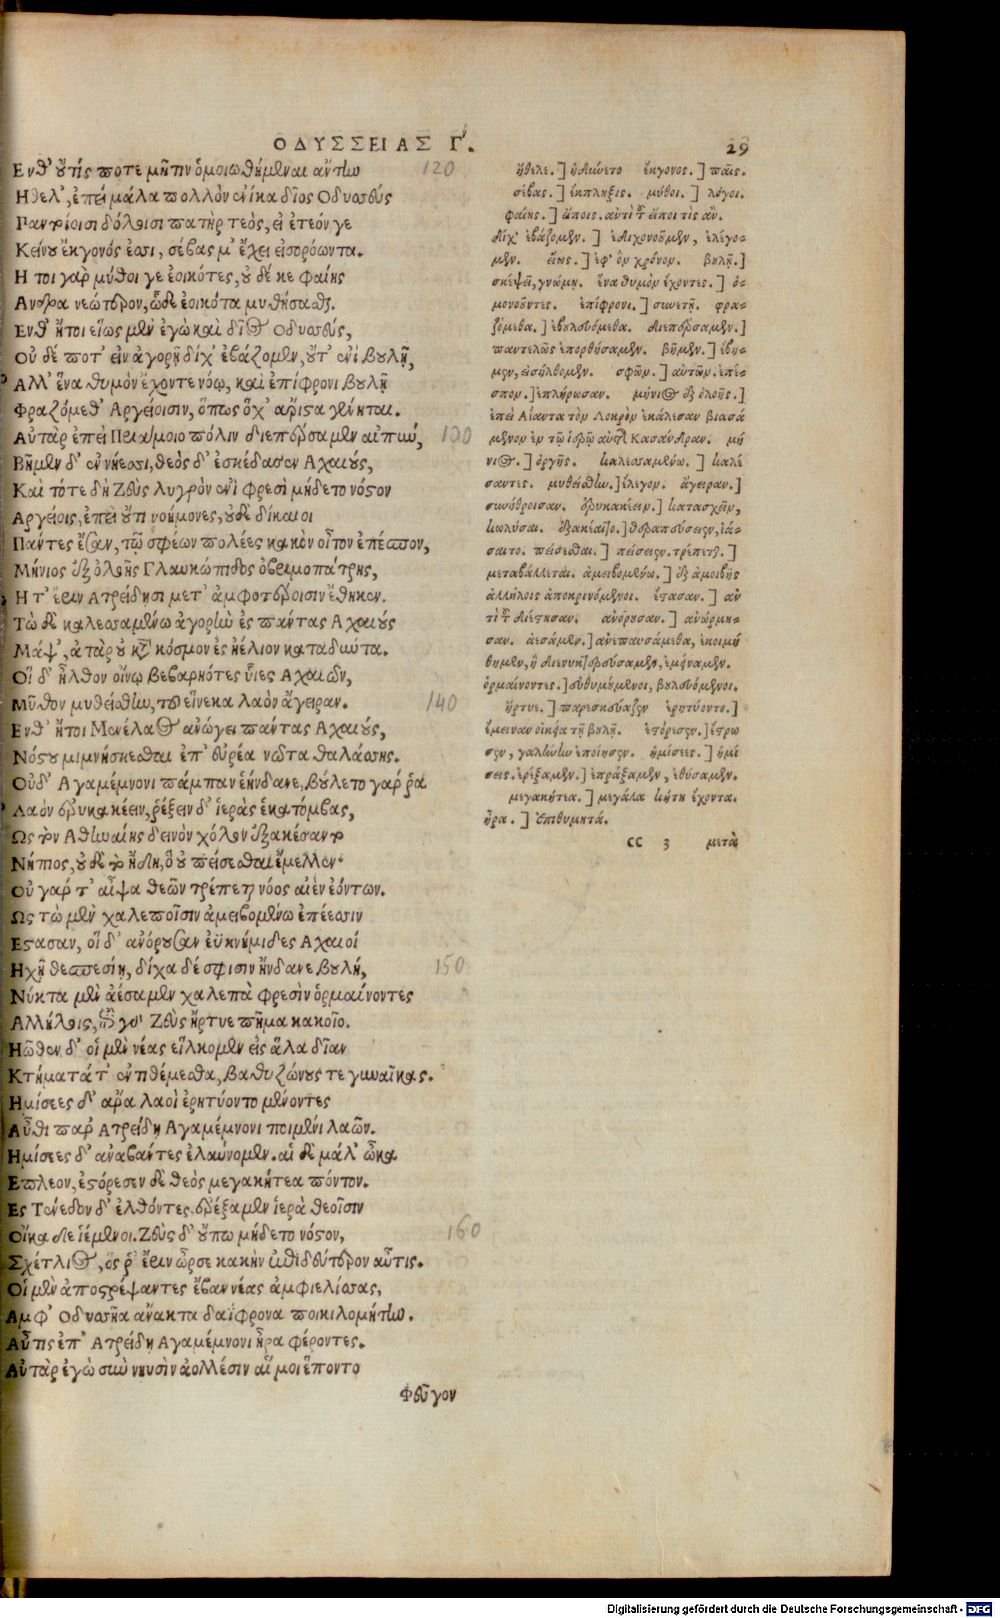 ΟΔΥΣΣΕΙΑΣ Γ. 29
Ενθ' οὔτίς ποτε μῆτιν ὁμοιωθήμεναι αὔτην 120
Ηθελ', ἐπεὶ μάλα πολλὸν ἐνίκα δῖος Οδυσεύς
Παντοίοισι δόλοισι πατὴρ τεὸς, εἰ ἐτεόν γε
Κείνου ἔκγονός ἐσσι, σέβας μ' ἔχει εἰσορόωντα.
Η τοι γαρ μύθοι γε ἐοικότες, οὐδέ κε φαίης
Ανδρα νεώτερον, ὧδε ἐοικότα μυθήσασθαι.
Ενθ' ἤτοι εἵως μὲν ἐγὼ καὶ δῖος Οδυσεύς,
Οὐδέ ποτ' εἰν ἀγορῇ δίχ' ἐβάζομεν, οὔτ' ἐνὶ βουλῇ,
Αλλ' ἕνα θυμὸν ἔχοντε νόῳ, καὶ ἐπίφρονι βουλῇ
Φραζόμεθ' Αργείοισιν, ὅπως ὄχ' ἄριστα γένηται.
Αὐτὰρ ἐπεὶ Πριάμοιο πόλιν διεπέρσαμεν αἰπήν, 130
Βῆμεν δ' ἐν νήεσσι, θεὸς δ' ἐσκέδασεν Αχαιούς,
Καὶ τότε δὴ Ζεὺς λυγρὸν ἐνὶ φρεσὶ μήδετο νόστον
Αργείοις, ἐπεὶ οὔτι νοήμονες, οὐδὲ δίκαιοι
Πάντες ἔσαν, τῷ σφέων πολέες κακὸν οἶτον ἐπέσπον,
Μήνιος ἐξ ὀλοῆς Γλαυκώπιδος ὀβριμοπάτρης,
Η τ' ἔριν Ατρείδησι μετ' ἀμφοτέροισιν ἔθηκεν.
Τὼ δὲ καλεσσαμένω ἀγορὴν ἐς πάντας Αχαιούς
Μάψ', ἀτὰρ οὐ κατὰ κόσμον ἐς ἠέλιον καταδύντα.
Οἱ δ' ἦλθον οἴνῳ βεβαρηότες ὗιες Αχαιῶν,
Μῦθον μυθείσθην, τοῦ εἵνεκα λαὸν ἄγειραν. 140
Ενθ' ἤτοι Μενέλαος ἀνώγει πάντας Αχαιούς,
Νόστου μιμνήσκεσθαι ἐπ' εὐρέα νῶτα θαλάσσης.
Οὐδ' Αγαμέμνονι πάμπαν ἑήνδανε, βούλετο γαρ ῥα
Λαὸν ἐρυκακέειν, ῥέξειν δ' ἱερὰς ἑκατόμβας,
Ως τὸν Αθηναίης δεινὸν χόλον ἐξακέσαιτο
Νήπιος, οὐδὲ τὸ ᾔδη, ὃ οὐ πείσεσθαι ἔμελλεν·
Οὐ γαρ τ' αἶψα θεῶν τρέπεται νόος αἰὲν ἐόντων.
Ως τὼ μὲν χαλεποῖσιν ἀμειβομένω ἐπέεσσιν
Εστασαν, οἱ δ' ἀνόρουσαν ἐϋκνήμιδες Αχαιοί
Ηχῇ θεσπεσίῃ, δίχα δέ σφισιν ἥνδανε βουλή, 150
Νύκτα μὲν ἀέσαμεν χαλεπὰ φρεσὶν ὁρμαίνοντες
Αλλήλοις, ἐπὶ γὰρ Ζεὺς ἤρτυε πῆμα κακοῖο.
Ηῶθεν δ' οἱ μὲν νέας εἵλκομεν εἰς ἅλα δῖαν
Κτήματά τ' ἐντιθέμεσθα, βαθυζώνους τε γυναῖκας.
Ημίσεες δ' ἄρα λαοὶ ἐρητύοντο μένοντες
Αὖθι παρ' Ατρείδῃ Αγαμέμνονι ποιμένι λαῶν.
Ημίσεες δ' ἀναβάντες ἐλαύνομεν. αἱ δὲ μάλ' ὦκα
Επλεον, ἐστόρεσεν δὲ θεὸς μεγακήτεα πόντον.
Ες Τένεδον δ' ἐλθόντες, ἐρέξαμεν ἱερὰ θεοῖσιν
Οἴκαδε ἱέμενοι. Ζεὺς δ' οὔπω μήδετο νόστον, 160
Σχέτλιος, ὅς ῥ' ἔριν ὦρσε κακὴν ἐπὶ δεύτερον αὖτις.
Οἱ μὲν ἀποστρέψαντες ἔβαν νέας ἀμφιελίσσας,
Αμφ' Οδυσῆα ἄνακτα δαΐφρονα ποικιλομήτην.
Αὖτις ἐπ' Ατρείδῃ Αγαμέμνονι ἦρα φέροντες.
Αὐτὰρ ἐγὼ σὺν νηυσὶν ἀολλέσιν αἵ μοι ἕποντο
Φεῦγον
ἤθελε.] ἠδύνετο ἔκγονος.] παῖς.
σέβας.] ἔκπληξις. μύθοι.] λόγοι.
φαίης.] εἴποις. αὐτὶ τοῦ εἴποι τὶς ἄν.
δίχ' ἐβάζομεν.] ἐδιχονοοῦμεν, ἐλέγο-
μεν. εἵως.] ἐφ' ὃν χρόνον. βουλῇ.]
σκέψει, γνώμῃ. ἕνα θυμὸν ἔχοντες.] ὁ-
μονοοῦντες. ἐπίφρονι.] συνετῇ. φρα-
ζόμεθα.] ἐβουλευόμεθα. διεπέρσαμεν.]
παντελῶς ἐπορθήσαμεν. βῆμεν.] ἔβη-
μεν, εἰσήλθομεν. σφῶν.] αὐτῶν. ἐπέ-
σπον.] ἐπλήρωσαν. μήνιος ἐξ ὀλοῆς.]
ἐπεὶ Αἴαντα τὸν Λοκρὸν ἐκάλεσαν βιασά
μενον ἐν τῷ ἱερῷ αὐτῆς Κασάνδραν. μή
νιος.] ὀργῆς. καλεσσαμένω.] καλέ
σαντες. μυθείσθην.] ἔλεγον. ἄγειραν.]
συνήθροισαν. ἐρυκακέειν.] κατασχεῖν,
κωλύσαι. ἐξακέσαιτο.] θεραπεύσειεν, ἰά-
σαιτο. πείσεσθαι.] πείσειεν. τρέπεται.]
μεταβάλλεται. ἀμειβομένω.] ἐξ ἀμοιβῆς
ἀλλήλοις ἀποκρινόμενοι. ἔστασαν.] ἀν
τὶ τοῦ διέστησαν. ἀνόρουσαν.] ἀνώρμη-
σαν. ἀέσαμεν.] ἀνεπαυσάμεθα, ἐκοιμή
θημεν, ἢ διενυκτερεύσαμεν, ἐμείναμεν.
ὁρμαίνοντες.] ἐνθυμούμενοι, βουλευόμενοι.
ἤρτυε.] παρεσκεύαζεν ἐρητύοντο.]
ἔμειναν οἰκῆσαι τῇ βουλῇ. ἐστόρεσεν.] ἔστρω
σεν, γαλήνην ἐποίησεν. ἡμίσεες.] ἡμί
σεις. ἐρέξαμεν.] ἐπράξαμεν, ἐθύσαμεν.
μεγακήτεα.] μεγάλα κήτη ἔχοντα.
ἦρα.] ἐπιθυμητά.
CC 3 μετὰ
Digitalisierung gefördert durch die Deutsche Forschungsgemeinschaft - DFG